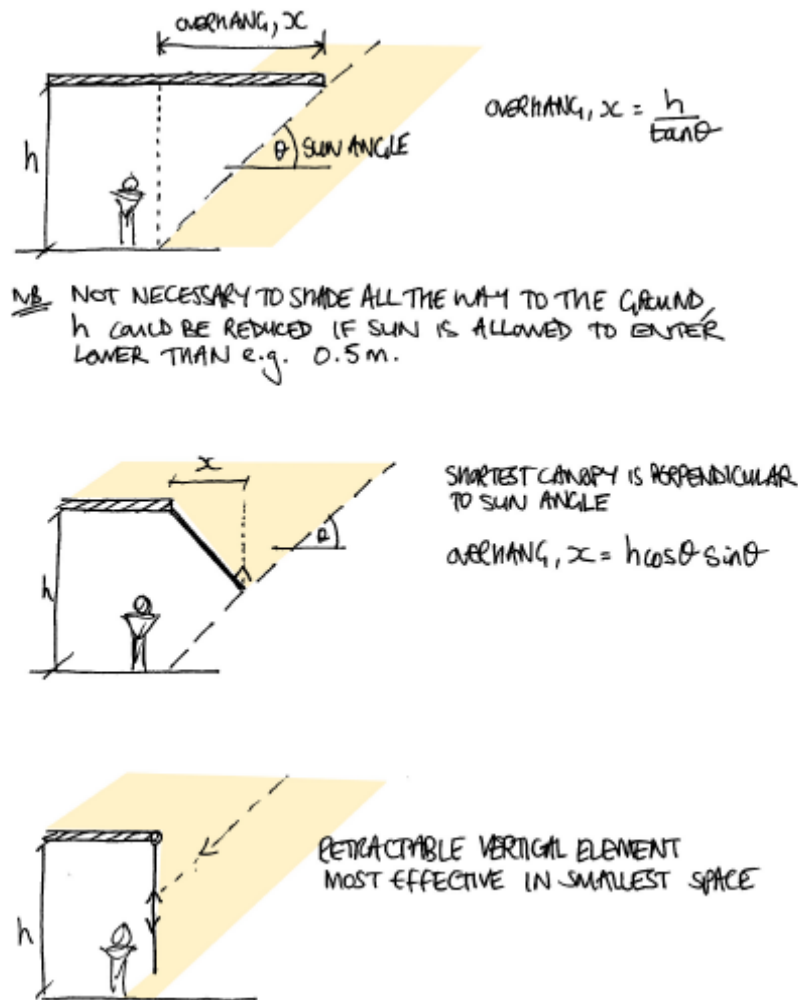 OVERHANG, x
h
θ SUN ANGLE
OVERHANG, x = h/tanθ
NB NOT NECESSARY TO SHADE ALL THE WAY TO THE GROUND,
h COULD BE REDUCED IF SUN IS ALLOWED TO ENTER
LOWER THAN e.g. 0.5m.
x
h
θ
SHORTEST CANOPY IS PERPENDICULAR
TO SUN ANGLE
OVERHANG, x = hcosθ sinθ
h
RETRACTABLE VERTICAL ELEMENT
MOST EFFECTIVE IN SMALLEST SPACE